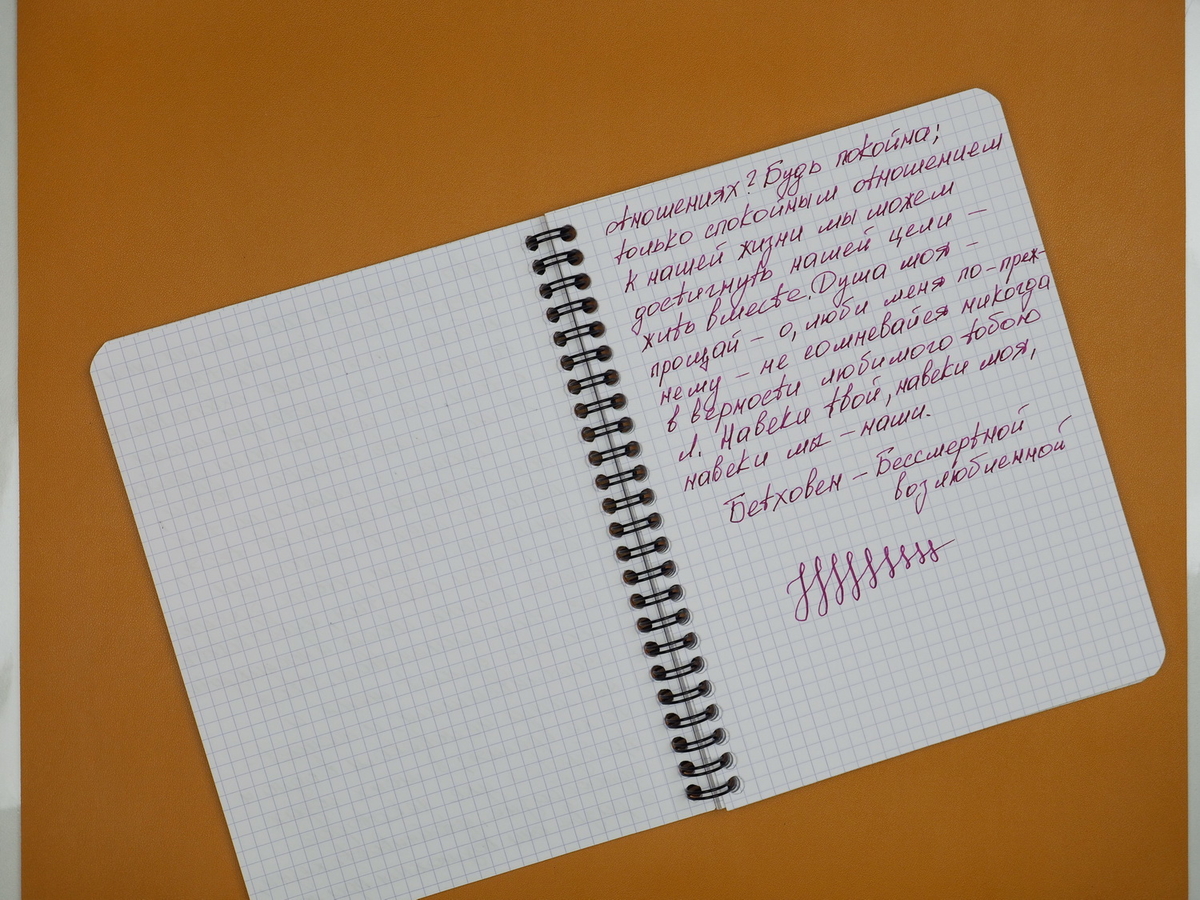 отношениях? Будь покойна;
только спокойным отношением
к нашей жизни мы можем
достигнуть нашей цели –
жить вместе. Душа моя –
прощай – о, люби меня по-преж-
нему – не сомневайся никогда
в верности любимого тобою
Л. Навеки твой, навеки моя,
навеки мы – наши.
Бетховен – Бессмертной
возлюбленной